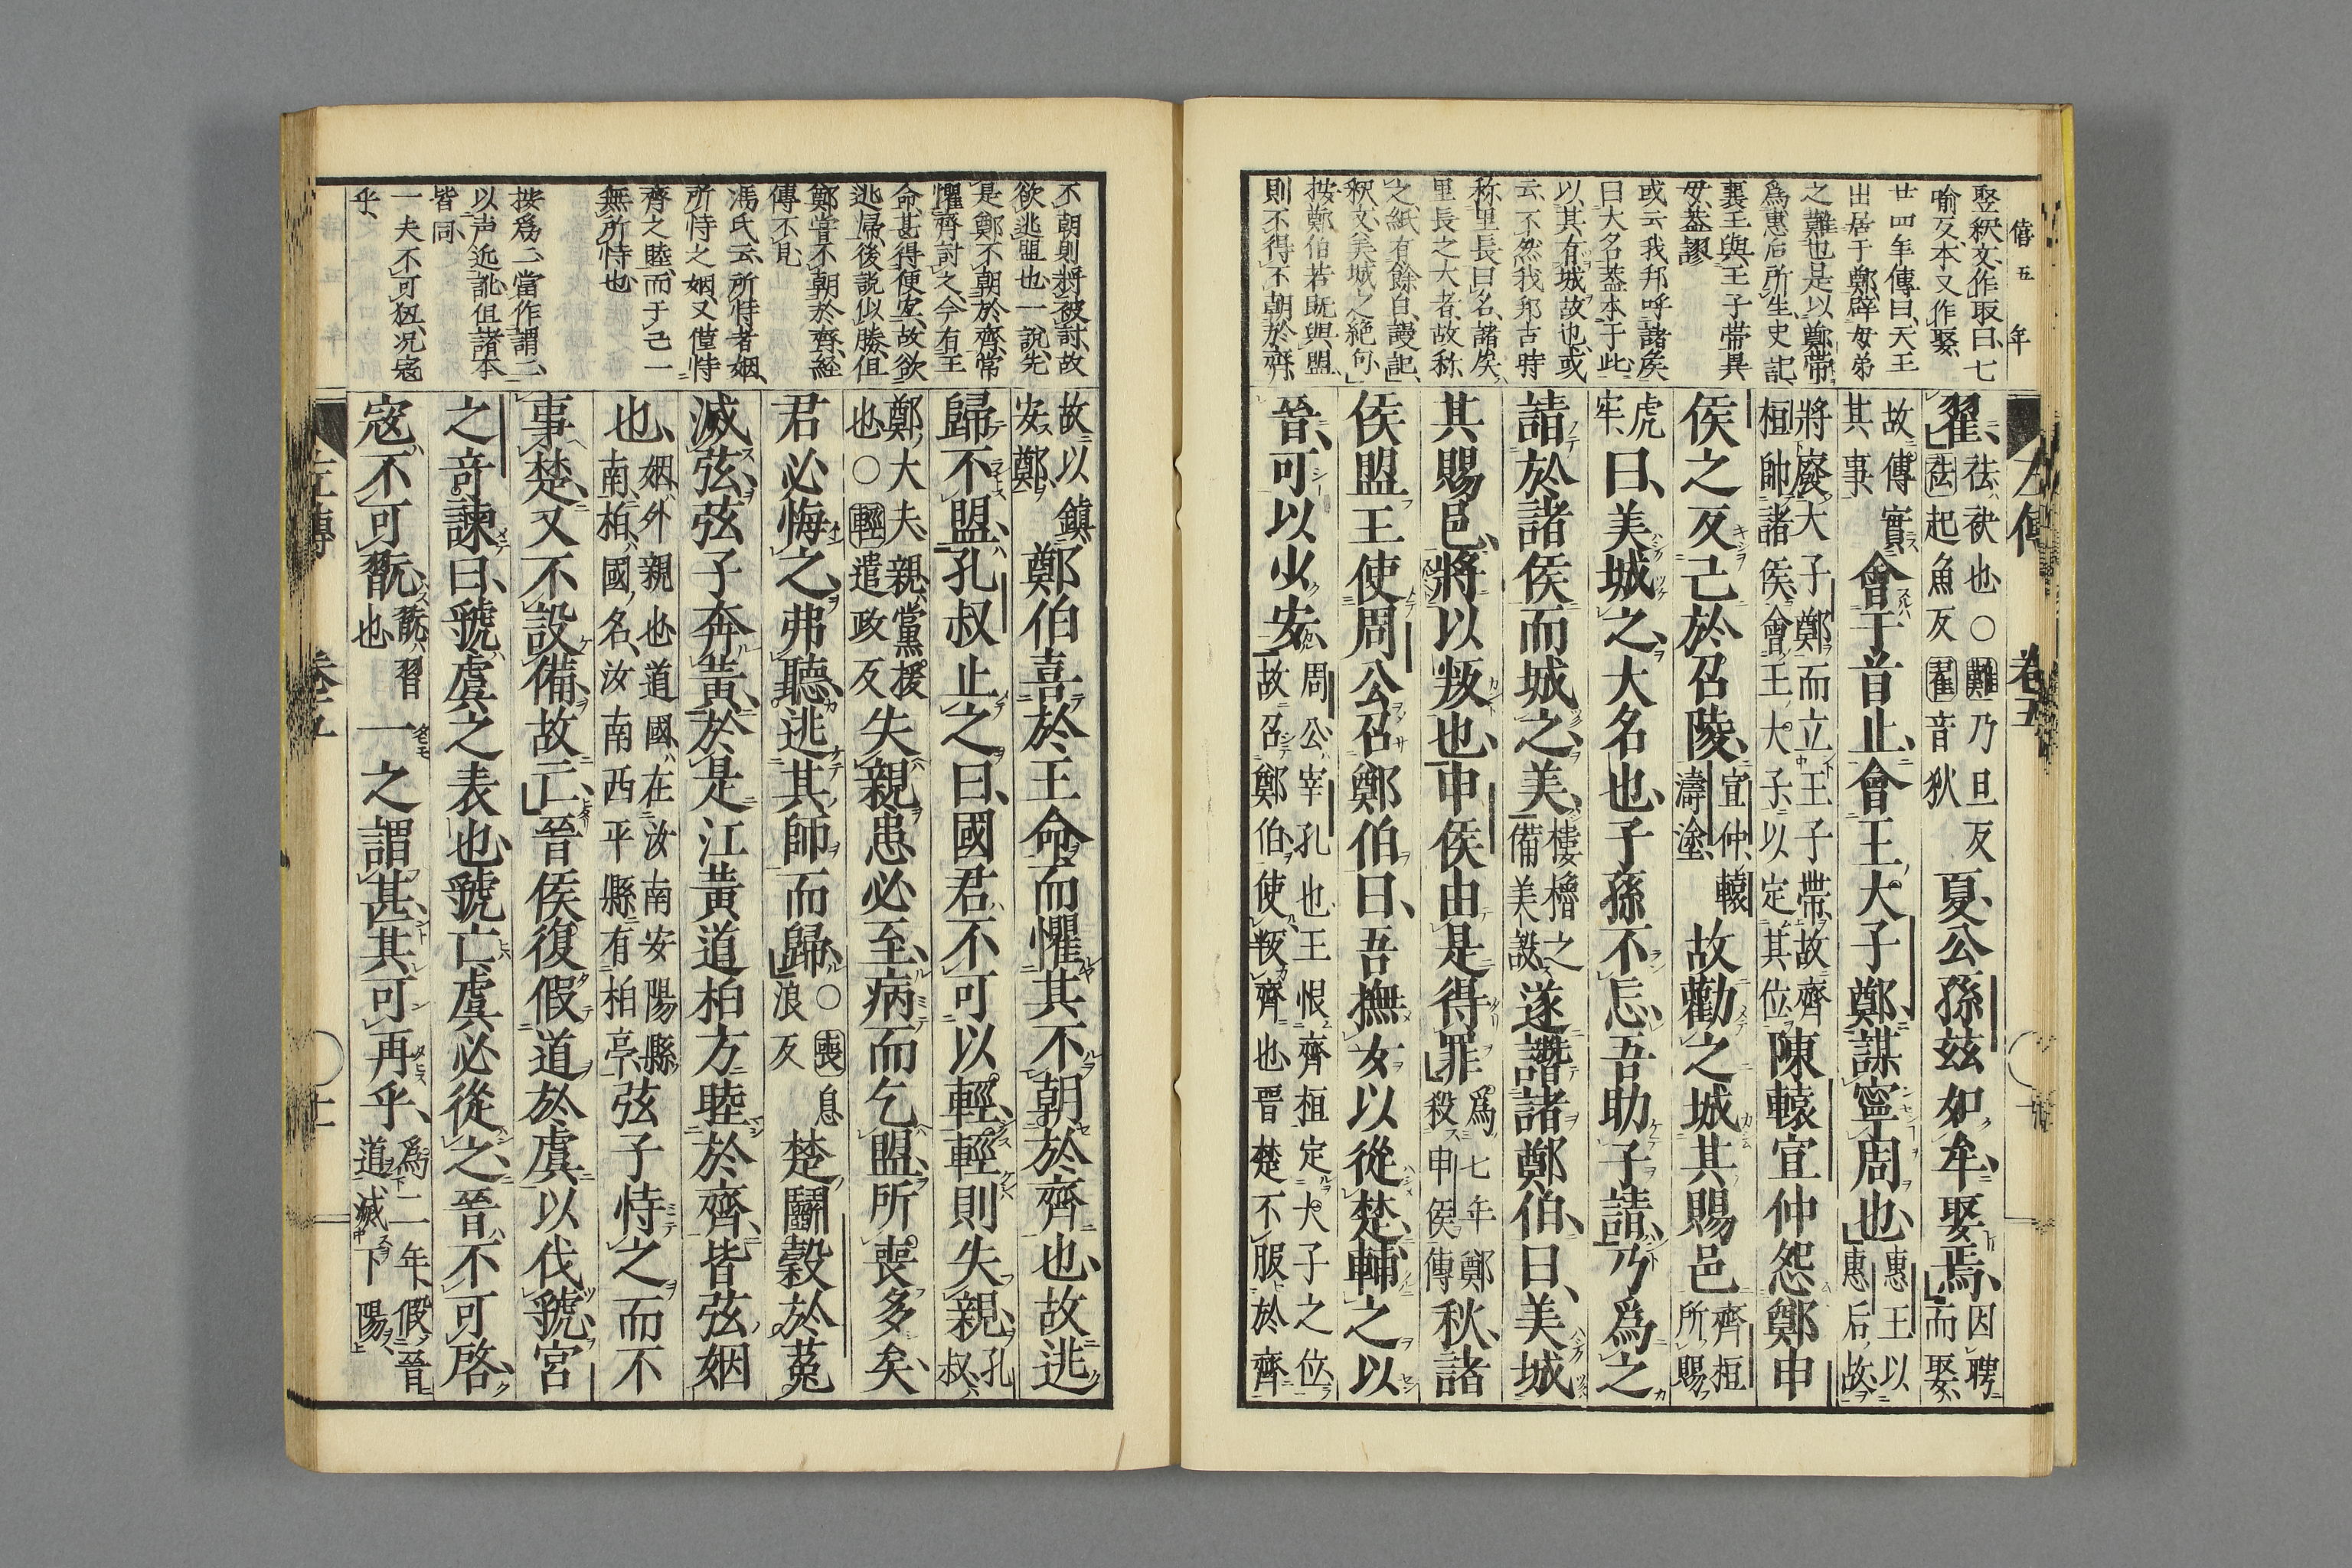 僖五年
娶釈文作取曰、七
喻反、本又作娶、
廿四年傳曰、天王
出居于鄭、辟母弟
之難也、是以鄭帶
爲惠后所生、史記
襄王與王子帶異
母、蓋謬
或云我邦呼諸矦
曰大名、蓋本于此、
以其有城故也、或
云、不然、我邦古時
称里長曰名、諸矦、
里長之大者、故称
之、紙有餘白、謾記、
釈文、美城之絶句、
按鄭伯若既與盟
則不得不朝於齊、
左傳 卷五
翟、祛、袂也○難乃旦反祛起魚反翟音狄夏、公孫茲如牟、娶焉、因聘而娶、
故傳實其事會于首止、會王大子鄭、謀寧周也、惠王以惠后故
將廢大子鄭而立王子帶、故齊桓帥諸侯會王大子、以定其位陳轅宣仲怨鄭申
侯之反己於召陵、宣仲、轅濤塗、故勸之城其賜邑、齊桓所賜
虎牢、曰、美城之、大名也、子孫不忘、吾助子請、乃爲之
請於諸侯而城之、美、樓櫓之備美設遂譖諸鄭伯、曰、美城
其賜邑、將以叛也、申侯由是得罪、爲七年鄭殺申侯傳秋、諸
侯盟、王使周公召鄭伯曰、吾撫女以從楚、輔之以
晉、可以少安、周公、宰孔也、王恨齊桓定大子之位、故召鄭伯使叛齊也、晉楚不服於齊
不朝則將被討、故
欲逃盟也、一說、先
是鄭不朝於齊、常
懼齊討之、今有王
命、甚得便宜、故欲
逃歸、後說似勝、但
鄭嘗不朝於齊、經
傳不見
馮氏云、所恃者姻、
所恃之姻、又僅恃
齊之睦、而于己一
無所恃也
按爲二、當作謂二、
以声近訛、但諸本
皆同、
一夫不可翫、况寇
乎、
故以鎮安鄭鄭伯喜於王命、而懼其不朝於齊也、故逃
歸不盟、孔叔止之曰、國君不可以輕、輕則失親、孔叔、
鄭大夫、親、黨援也○輕遣政反失親患必至、病而乞盟、所喪多矣、
君必悔之、弗聽、逃其師而歸、○喪息浪反楚鬭穀於菟
滅弦、弦子奔黃、於是江黃道柏方睦於齊、皆弦姻
也、姻、外親也、道國、在汝南安陽縣南、柏、國名、汝南西平縣有柏亭弦子恃之而不
事楚、又不設備、故亡、晉侯復假道於虞以伐虢、宮
之奇諫曰、虢、虞之表也、虢亡、虞必從之、晉不可啓、
寇不可翫、翫、習也一之謂甚、其可再乎、爲二年、假晉道滅下陽
左傳 卷五 十二